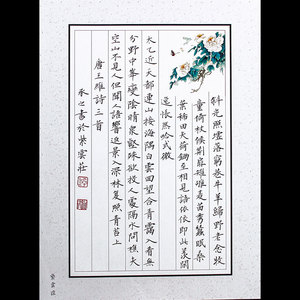 斜光照墟落窮巷牛羊歸野老念牧
童倚杖候荊扉雉雊麥苗秀蠶眠桑
葉稀田夫荷鋤至相見語依依即此羨閒
逸悵然吟式微
太乙近天都連山接海隅白雲回望合青靄入看無
分野中峯變陰晴眾壑殊欲投人處宿隔水問樵夫
空山不見人但聞人語響返景入深林復照青苔上
唐王維詩三首
承之書於紫雲莊
紫雲莊